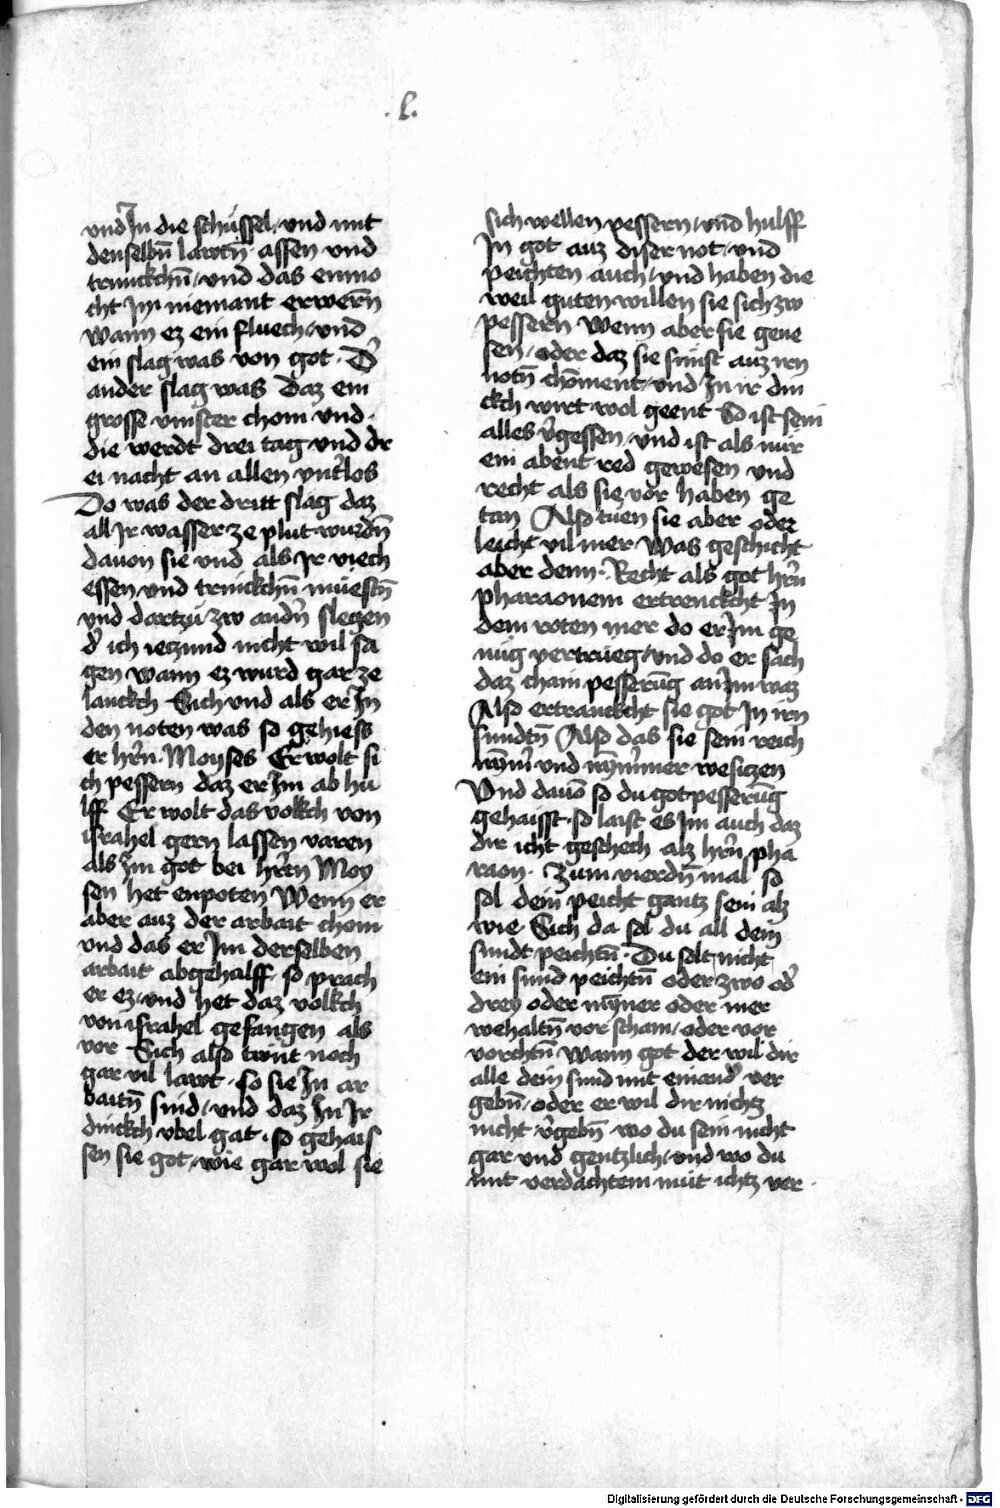 .l.
und In die schüssel, und mit
denselbn̄ lawtn̄ assen und
trinnckchn̄, und das enmo
cht Im niemant erwern̄
wann ez ein fluech, und
ein slag was von got. D'
ander slag was Daz ein
grosse vinster chom und.
die werdt drei tag und dr
ei nacht an allen vnt'los
Do was der dritt slag daz
all Ir wasser ze plut wurdn̄
dauon sie und als Ir viech
essen und trinckchn̄ müestn̄
und dartzu zw andn̄ slegen
d' ich ieczund nicht wil sa
gen wann ez wurd gar ze
lanckch Sich und als er In
den noten was so gehiess
er hr̄n. Moyses Er wolt si
ch pessern daz er Im ab hu
lff Er wolt das volkch von
israhel gern lassen varen
als Im got bei hr̄en Moy
sen het enpoten Wenn er
aber auz der arbait chom
und das er Im derselben
arbait abgehalff so prach
er ez, und het daz volkch
von israhel gefangen als
vor Sich also twnt noch
gar vil lawt. so sie In ar
baitn̄ sind, und daz In Ir
dinckch vbel gat. so gehais
sen sie got, wie gar wol sie
sich wellen pessern, und hulff
In got auz diser not, und
peichten auch, und haben die
weil guten willen sie sich zw
pessern Wenn aber sie gene
sen, oder daz sie sunst auz irn
notn̄ chōment, und In ir din
ckch wirt wol geent So ist sein
alles v'gessen, und ist als nur
ein abent red gewesen und
recht als sie vor haben ge
tan Also tuen sie aber oder
leicht vil mer Was geschicht
aber denn. Recht als got hr̄n
pharaonem ertrenckcht In
dem roten mer do er Im ge
nug vertrueg, und do er sach
daz cham pesserūg an Im waz
Also ertranckcht sie got In irn
sundtn̄ Also das sie sein reich
und wesiczen
Und dauō so du got pesserūg
gehaisst. so laist es Im auch daz
dir icht geschech alz hr̄n pha
raon. Zum vierdn̄ mal so
sol dein peicht gantz sein alz
wie. Sich da sol du all dein
sundt peichtn̄. Du solt nicht
ein sund peichtn̄ oder zwo od'
drey oder oder mer
wehaltn̄ vor scham, oder vor
vorchtn̄ Wann got der wil dir
alle dein sund mit einand' ver
gebn̄, oder er wil dir nichtz
nicht v'gebn̄ wo du sein nicht
gar und gentzlich, und wo du
mit verdachtem mut ichtz ver.
Digitalisierung gefördert durch die Deutsche Forschungsgemeinschaft - DFG